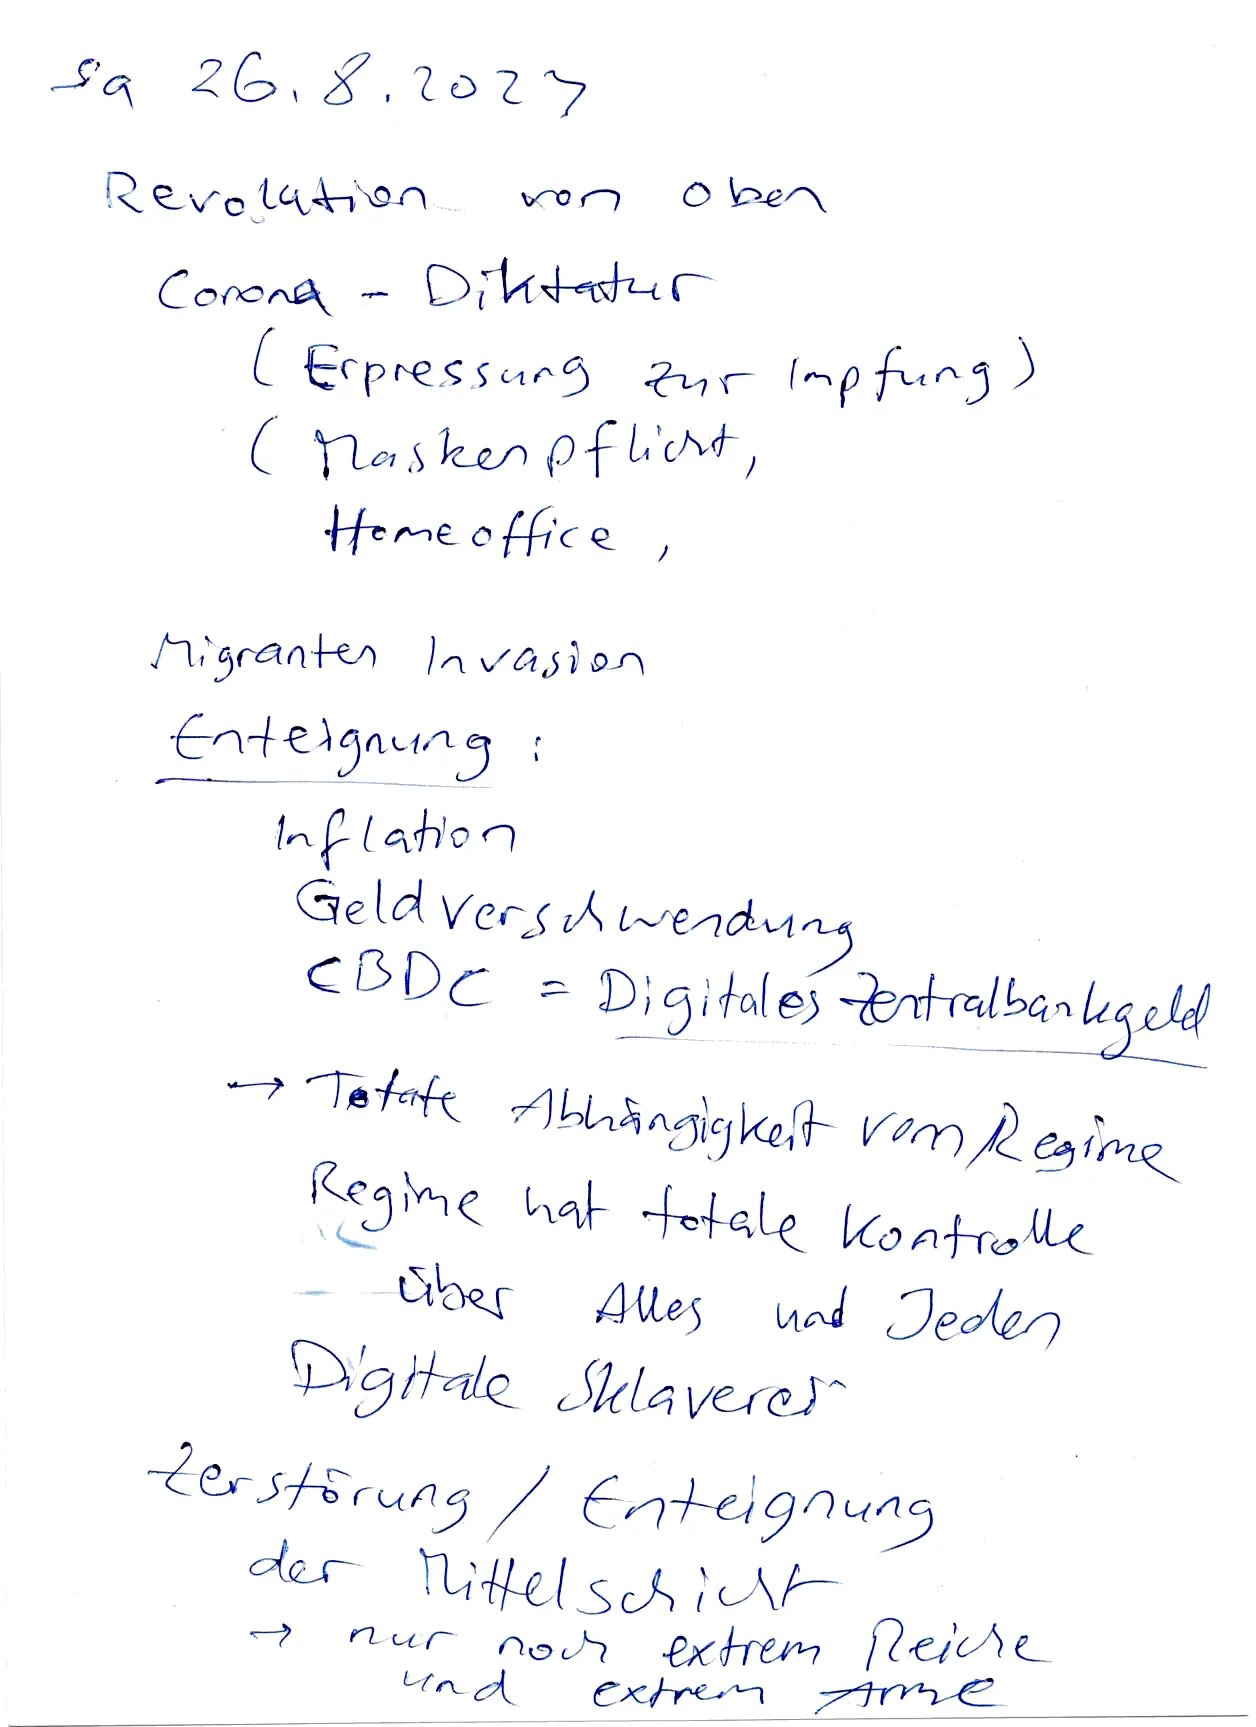 Sa 26.8.2023
Revolution von oben
Corona - Diktatur
(Erpressung zur Impfung)
(Maskenpflicht,
Homeoffice,
Migranten Invasion
Enteignung:
Inflation
Geldverschwendung
CBDC = Digitales Zentralbankgeld
→ Totale Abhängigkeit vom Regime
Regime hat totale Kontrolle
über Alles und Jeden
Digitale Sklaverei
Zerstörung / Enteignung
der Mittelschicht
→ nur noch extrem Reiche
und extrem Arme